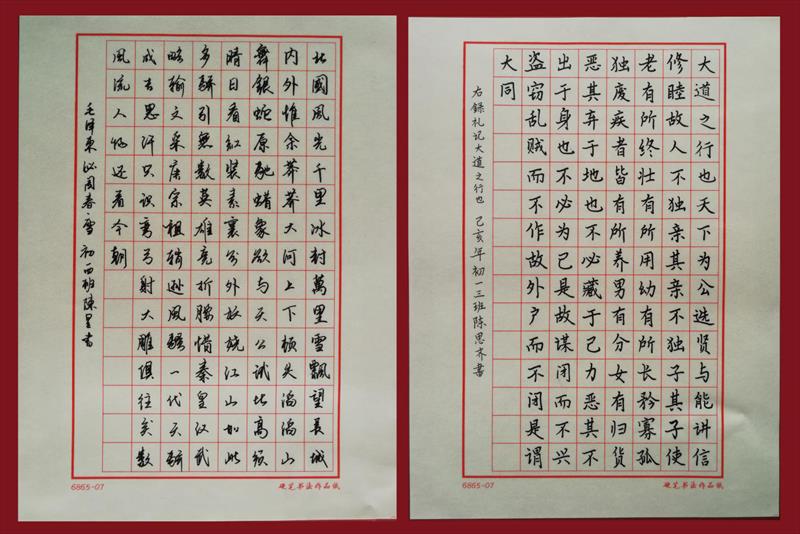 北國風光千里冰封萬里雪飄望長城
内外惟余莽莽大河上下頓失滔滔山
舞銀蛇原馳蠟象欲与天公試比高須
晴日看紅裝素裹分外妖娆江山如此
多驕引無數英雄竞折腰惜秦皇汉武
略輸文采唐宗祖稍遜風騷一代天驕
成吉思汗只識彎弓射大雕俱往矣數
風流人物还看今朝
毛泽东 沁园春·雪 初 班陈 書
6865-07
硬笔书法作品纸
大道之行也天下为公选贤与能讲信
修睦故人不独亲其亲不独子其子使
老有所终壮有所用幼有所长矜寡孤
独废疾者皆有所养男有分女有归货
恶其弃于地也不必藏于己力恶其不
出于身也不必为己是故谋闭而不兴
盗窃乱贼而不作故外户而不闭是谓
大同
右錄礼记大道之行也 己亥年初一三班陈思齐書
6865-07
硬笔书法作品纸